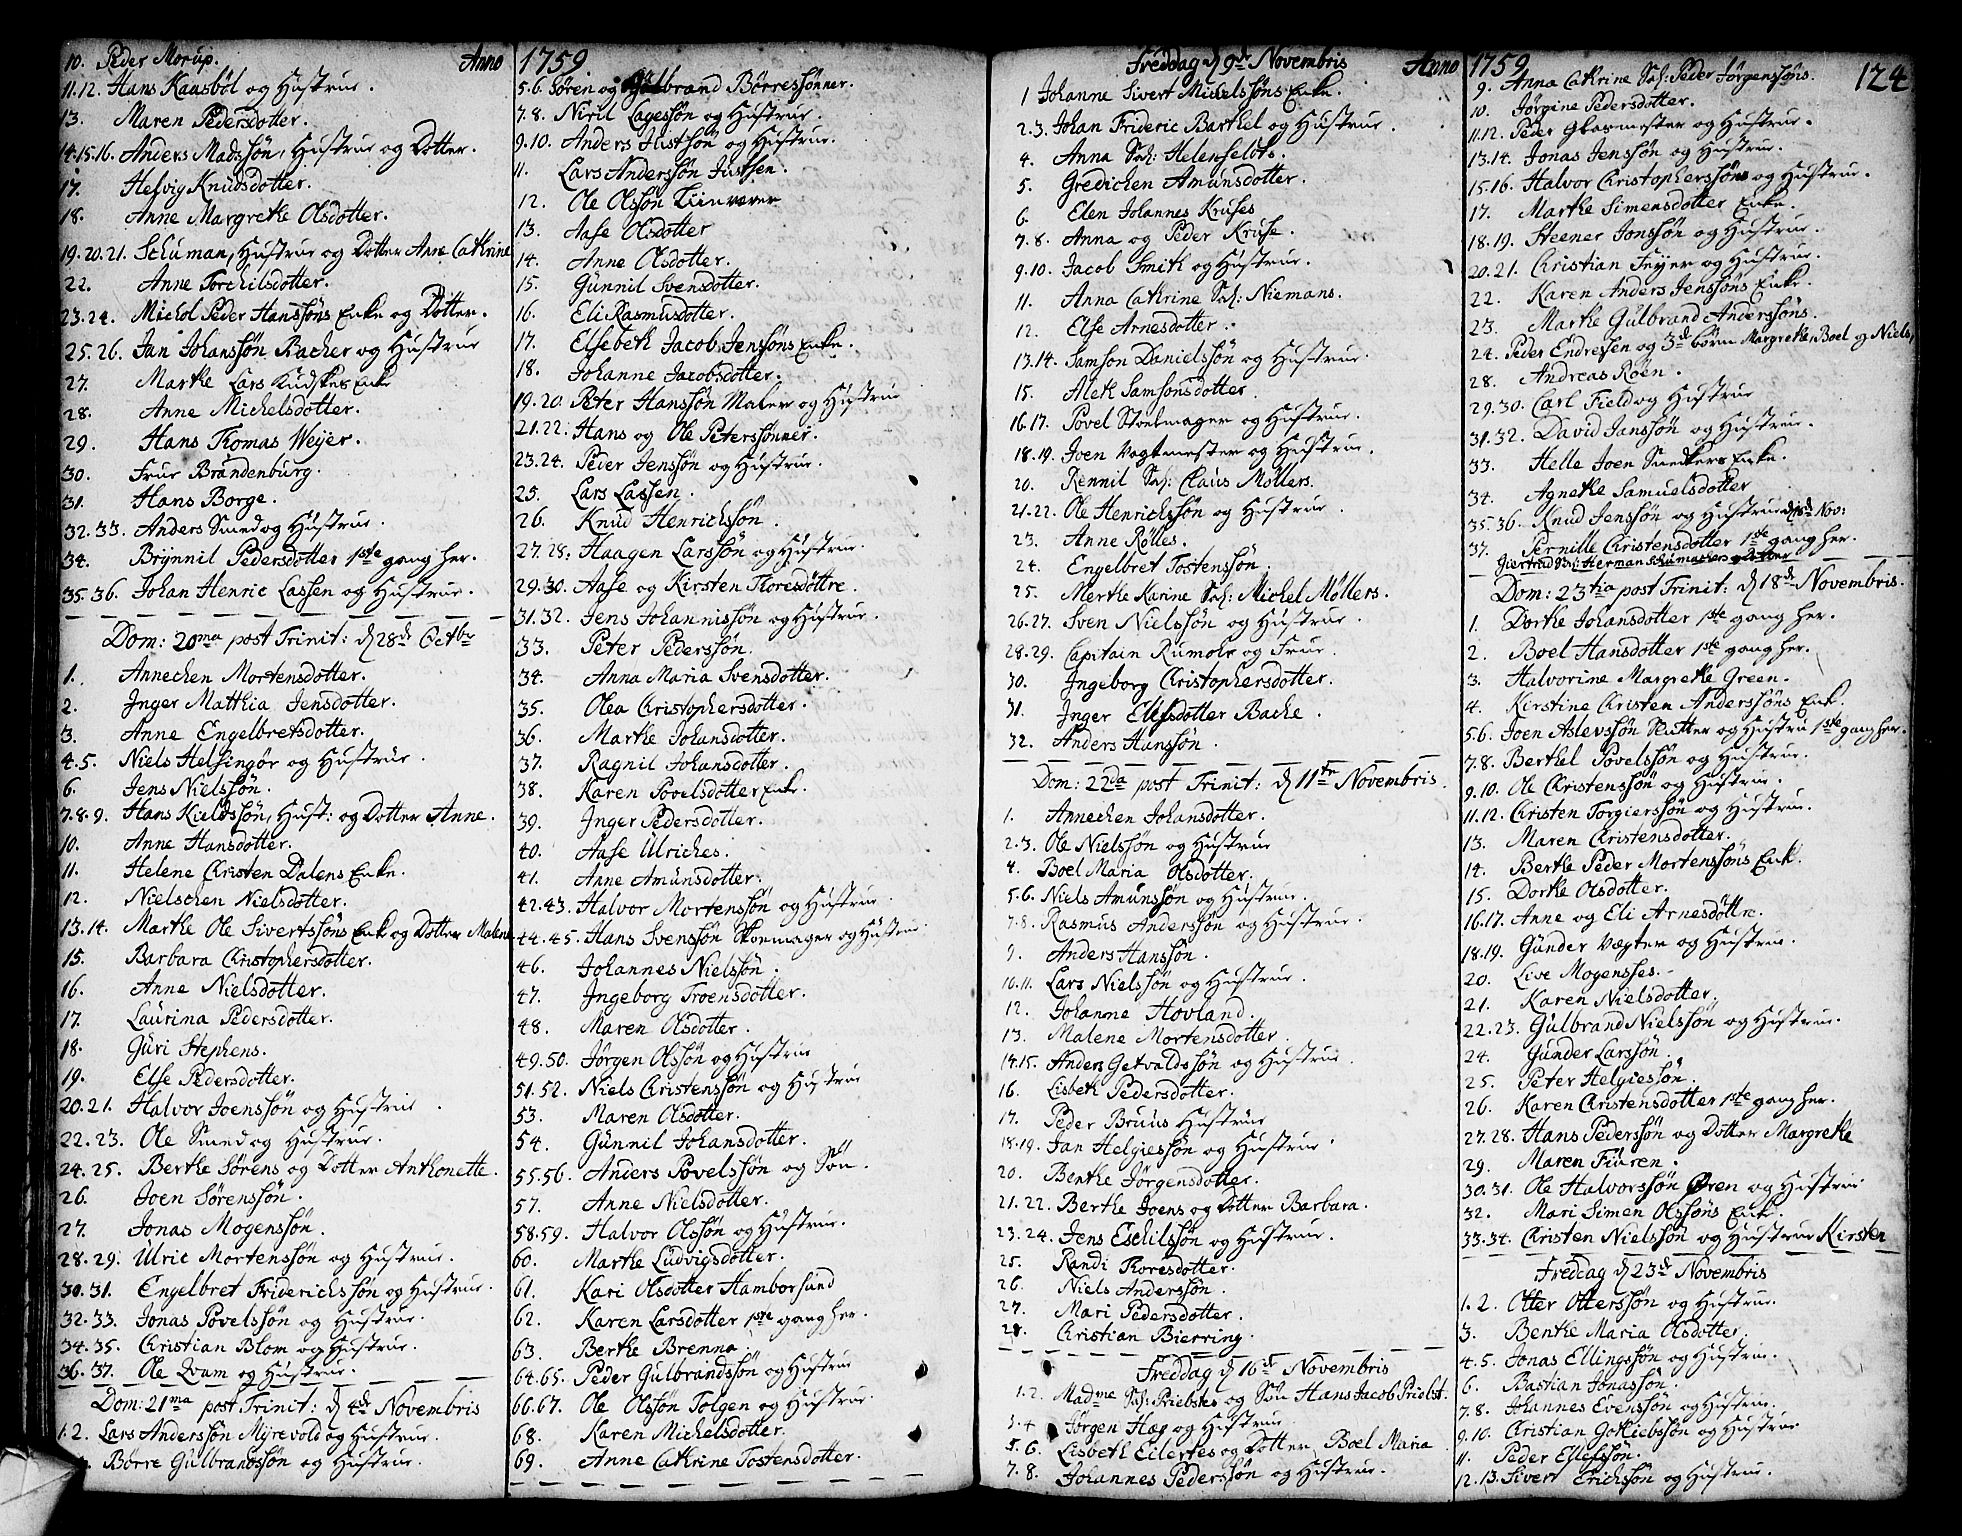 10. Peder Morup. Anno
11.12. Hans Kaasböl og Hustrue.
13. Maren Pedersdotter.
14.15.16. Anders Madssøn, Hustrue og Dotter.
17. Helvig Knudsdotter.
18. Anne Margrethe Olsdotter.
19.20.21. Schuman, Hustrue og Dotter Anne Cathrine
22. Anne Torchilsdotter.
23.24. Michol Peder Hanssøns Enke og Dotter.
25.26. Jan Johanssøn Bacher og Hustrue
27. Marthe Lars Kudskes Enke
28. Anne Michelsdotter.
29. Hans Thomas Weyer.
30. Frue Brandenburg.
31. Hans Borge.
32.33. Anders Smed og Hustrue.
34. Brynnil Pedersdotter 1ste gang her.
35.36. Johan Henric Lassen og Hustrue.
Dom: 20ma post Trinit: d 28de Octbr
1. Annechen Mortensdotter.
2. Inger Matthia Jensdotter.
3. Anne Engelbretsdotter.
4.5. Niels Helsingör og Hustrue.
6. Jens Nielssøn.
7.8.9. Hans Kieldssøn, Hust: og Dotter Anne.
10. Anne Hansdotter.
11. Helene Christen Dalens Enke.
12. Nielschen Nielsdotter.
13.14. Marthe Ole Sivertssøns Enk og Dotter Malene
15. Barbara Christophersdotter.
16. Anne Nielsdotter.
17. Laurina Pedersdotter.
18. Guri Stephens.
19. Else Pedersdotter.
20.21. Halvor Joenssøn og Hustrue.
22.23. Ole Smed og Hustrue.
24.25. Berthe Sörens og Dotter Anthonette.
26. Joen Sörenssøn.
27. Jonas Mogenssøn.
28.29. Ulric Mortenssøn og Hustrue.
30.31. Engelbret Friderichssøn og Hustrue.
32.33. Jonas Povelssøn og Hustrue.
34.35. Christian Blom og Hustrue.
36.37. Ole Qvam og Hustrue.
Dom: 21ma post Trinit: d 4de Novembris
1.2. Lars Anderssøn Myrevold og Hustrue.
Börre Gulbrandssøn og Hustrue.
1759
5.6. Sören og Gulbrand Börressønner.
7.8. Niril Lagessøn og Hustrue.
9.10. Anders Justsøn og Hustrue.
11. Lars Anderssøn Justsen.
12. Ole Olssøn Linvæver
13. Aase Olsdotter
14. Anne Olsdotter.
15. Gunnil Svensdotter.
16. Eli Rasmusdotter.
17. Elsebeth Jacob Jenssøns Enke.
18. Johanne Jacobsdotter.
19.20. Peter Hanssøn Maler og Hustrue
21.22. Hans og Ole Peterssønner.
23.24. Peder Jenssøn og Hustrue.
25. Lars Lassen.
26. Knud Henrichssøn.
27.28. Haagen Larssøn og Hustrue.
29.30. Aase og Kirsten Thoresdöttre.
31.32. Jens Johannissøn og Hustrue.
33. Peter Pederssøn.
34. Anna Maria Svensdotter.
35. Olea Christophersdotter.
36. Marthe Johansdotter.
37. Ragnil Johansdotter.
38. Karen Povelsdotter Enke.
39. Inger Pedersdotter.
40. Aase Ulriches.
41. Anne Amunsdotter.
42.43. Halvor Mortenssøn og Hustrue.
44.45. Hans Svenssøn Skoemager og Hustrue.
46. Johannes Nielssøn.
47. Ingeborg Troensdotter.
48. Maren Olsdotter.
49.50. Jörgen Olssøn og Hustrue
51.52. Niels Christenssøn og Hustrue
53. Maren Olsdotter.
54. Gunnil Johansdotter.
55.56. Anders Povelssøn og Søn.
57. Anne Nielsdotter.
58.59. Halvor Olssøn og Hustrue.
60. Marthe Ludvigsdotter.
61. Kari Olsdotter Hamborsund
62. Karen Larsdotter 1ste gang her.
63. Berthe Brenna.
64.65. Peder Gulbrandssøn og Hustrue
66.67. Ole Olssøn Tolgen og Hustrue
68. Karen Michelsdotter.
69. Anne Cathrine Tostensdotter.
Freddag d 9de Novembris Anno
1 Johanne Sivert Michelssøns Enke.
2.3. Johan Frideric Barthel og Hustrue.
4. Anna Sal: Helenfelbts.
5. Gredichen Amunsdotter.
6. Elen Johannes Kruses
7.8. Anna og Peder Kruse.
9.10. Jacob Smith og Hustrue.
11. Anna Cathrine Sal: Niemans.
12. Else Arnesdotter.
13.14. Samson Danielssøn og Hustrue.
15. Aleth Samsonsdotter.
16.17. Povel Stoelmager og Hustrue.
18.19. Joen Vagtmester og Hustrue.
20. Rennil Sal: Claus Mollers.
21.22. Ole Henrichssøn og Hustrue.
23. Anne Rölles.
24. Engelbret Tostenssøn.
25. Merthe Karine Sal: Michel Møllers.
26.27. Sven Nielssøn og Hustrue.
28.29. Capitain Rumohr og Frue.
30. Ingeborg Christophersdotter.
31. Inger Elefsdotter Bache.
32. Anders Hanssøn.
Dom: 22da post Trinit: d 11te Novembris
1. Annechen Johansdotter.
2.3. Ole Nielssøn og Hustrue
4. Boel Maria Olsdotter.
5.6. Niels Amunssøn og Hustrue.
7.8. Rasmus Anderssøn og Hustrue.
9. Anders Hanssøn.
10.11. Lars Nielssøn og Hustrue.
12. Johanne Hovland.
13. Malene Mortensdotter
14.15. Anders Getvaldssøn og Hustrue.
16. Lisbeth Pedersdotter.
17. Peder Bruus Hustrue
18.19. Jan Helgiessøn og Hustrue.
20. Benthe Jörgensdotter.
21.22. Berthe Joens og Dotter Barbara.
23.24. Jens Eschilssøn og Hustrue.
25. Randi Thoresdotter.
26. Niels Anderssøn.
27. Mari Pedersdotter.
28. Christian Bierring.
Freddag d 16de Novembris
1.2. Madme Sal: Priebsts og Søn Hans Jacob Priebst.
3.4 Jörgen Hæg og Hustrue
5.6. Lisbeth Eilertes og Dotter, Boel Maria
7.8. Johannes Pederssøn og Hustrue.
1759 124
9. Anna Cathrine Sal: Peder Jörgenssøns.
10. Jörgine Pedersdotter.
11.12. Peder Glasmester og Hustrue.
13.14. Jonas Jenssøn og Hustrue.
15.16. Halvor Christopherssøn og Hustrue.
17. Marthe Simensdotter Enke.
18.19. Steener Jonssøn og Hustrue.
20.21. Christian Feyer og Hustrue.
22. Karen Anders Jenssøns Enke.
23. Marthe Gulbrand Anderssøns.
24. Peder Endressen og 3de börn Margrethe, Boel og Niels.
28. Andreas Roen.
29.30. Carl Field og Hustrue
31.32. David Janssøn og Hustrue.
33. Helle Joen Snedkers Enke.
34. Agnethe Samuelsdotter
35.36. Knud Jenssøn og Hustrue d 18de Nov:
37. Pernille Christensdotter 1ste gang her.
Giertrud Sal: Herman Schumachers Dotter
Dom: 23tia post Trinit: d 18de Novembris.
1. Dorthe Johansdotter 1ste gang her.
2. Boel Hansdotter 1ste gang her.
3. Halvorine Margrethe Green.
4. Kirstine Christen Anderssøns Enk.
5.6. Joen Aslevssøn Slutter og Hustru 1ste gang her.
7.8. Berthel Povelssøn og Hustrue.
9.10. Ole Christenssøn og Hustrue.
11.12. Christen Torgierssøn og Hustrue.
13. Maren Christensdotter.
14. Berthe Peder Mortenssøns Enk.
15. Dorthe Olsdotter.
16.17. Anne og Eli Arnesdöttre.
18.19. Gunder Vægter og Hustrue.
20. Live Mogenses.
21. Karen Nielsdotter.
22.23. Gulbrand Nielssøn og Hustrue.
24. Gunder Larssøn.
25. Peter Helgiessøn.
26. Karen Christensdotter 1ste gang her.
27.28. Hans Pederssøn og Dotter Margrethe
29. Maren Fiuren.
30.31. Ole Halvorssøn Ören og Hustrue
32. Mari Simen Olssøns Enk.
33.34. Christen Nielssøn og Hustrue Kirsten
Freddag d 23de Novembris
1.2. Otter Otterssøn og Hustrue.
3. Benthe Maria Olsdotter.
4.5. Jonas Ellingssøn og Hustrue.
6. Bastian Jonassøn.
7.8. Johannes Evenssøn og Hustrue.
9.10. Christian Gotliebssøn og Hustrue
11. Peder Ellefssøn.
12.13. Sivert Erichssøn og Hustrue.